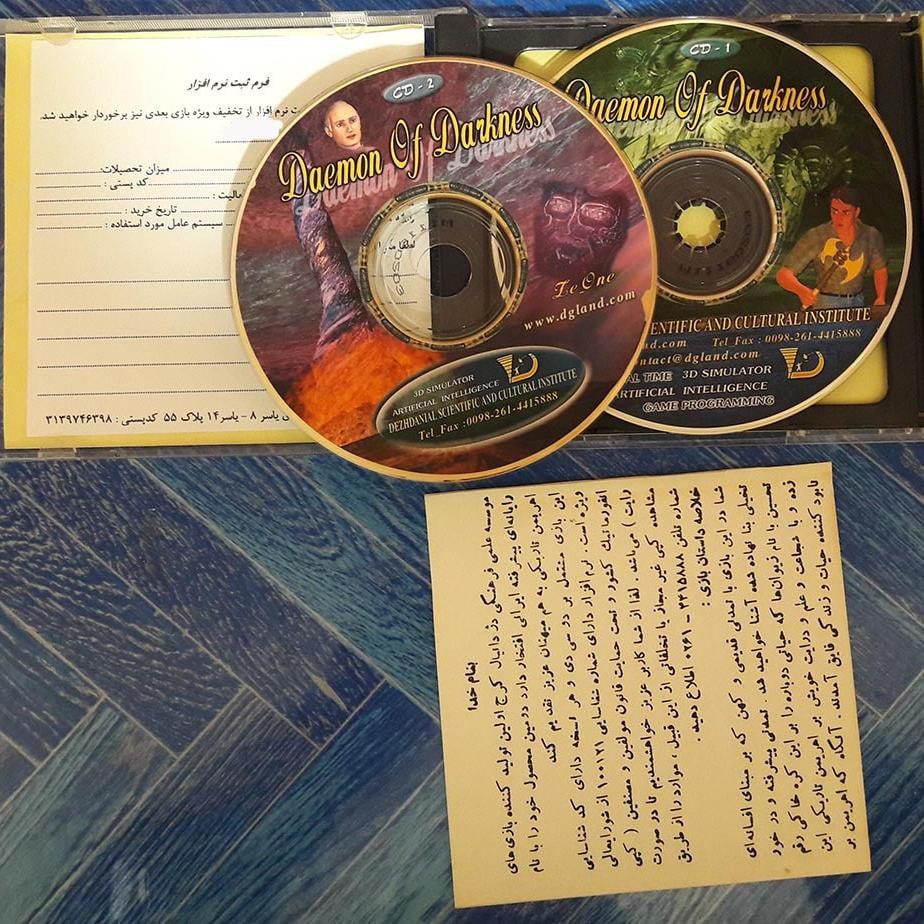 فرم ثبت نرم افزار
نرم افزار از تخفیف ویژه بازی بعدی نیز برخوردار خواهید شد.
میزان تحصیلات:
کد پستی :
تاریخ خرید :
سیستم عامل مورد استفاده :
یاسر ۸ - یاسر ۱۴ پلاک ۵۵ کدپستی : ۳۱۳۹۷۴۶۳۹۸
CD - 2
Daemon Of Darkness
ZeOne
www.dgland.com
3D SIMULATOR
ARTIFICIAL INTELLIGENCE
DEZHDANIAL SCIENTIFIC AND CULTURAL INSTITUTE
Tel_Fax : 0098-261-4415888
CD - 1
Daemon Of Darkness
SCIENTIFIC AND CULTURAL INSTITUTE
Tel_Fax : 0098-261-4415888
contact@dgland.com
3D SIMULATOR
ARTIFICIAL INTELLIGENCE
GAME PROGRAMMING
بنام خدا
موسسه علمی فرهنگی دژ دانیال کرج اولین تولید کننده بازی های
رایانه‌ای پیشرفته ایرانی افتخار دارد دومین محصول خود را با نام
اهریمن تاریکی به هم میهنان عزیز تقدیم کند
این بازی مشتمل بر دو سی دی و هر نسخه دارای کد شناسایی
ویژه است. نرم افزار دارای شماره شناسایی ۱۰۰۱۲۱ از شورایعالی
انفورماتیک کشور و تحت حمایت قانون مولفین و مصنفین ( کپی
رایت ) می‌باشد. لذا از شما کاربر عزیز خواهشمندیم تا در صورت
مشاهده کپی غیر مجاز یا تخلفاتی از این قبیل ، موارد را از طریق
شماره تلفن ۴۴۱۵۸۸۸ - ۰۲۶۱ اطلاع دهید.
خلاصه داستان بازی :
شما در این بازی با تمدنی قدیمی و کهن که بر مبنای افسانه‌ای
تخیلی بنا نهاده شده آشنا خواهید شد. تمدنی پیشرفته و در خود
تحسین با نام زیوان‌ها که حیاتی دوباره را بر این کره خاکی رقم
زده و با شجاعت و علم و درایت خویش بر اهریمن تاریکی این
نابود کننده حیات و زندگی فایق آمدند. آنگاه که اهریمن بر